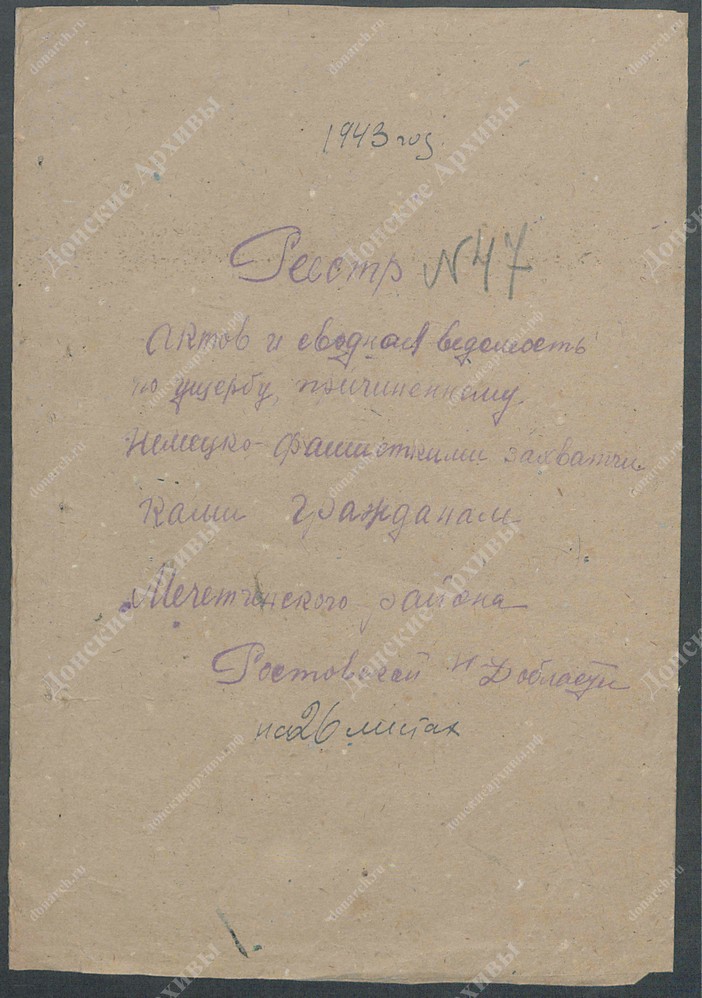 1943 год
Реестр N 47
Актов и сводная ведомость
по ущербу, причиненному
Немецко-фашисткими захватчи
ками гражданам
Мечетинского района
Ростовской н-Д области
на 26 листах
Донские Архивы
donarch.ru
донскиеархивы.рф